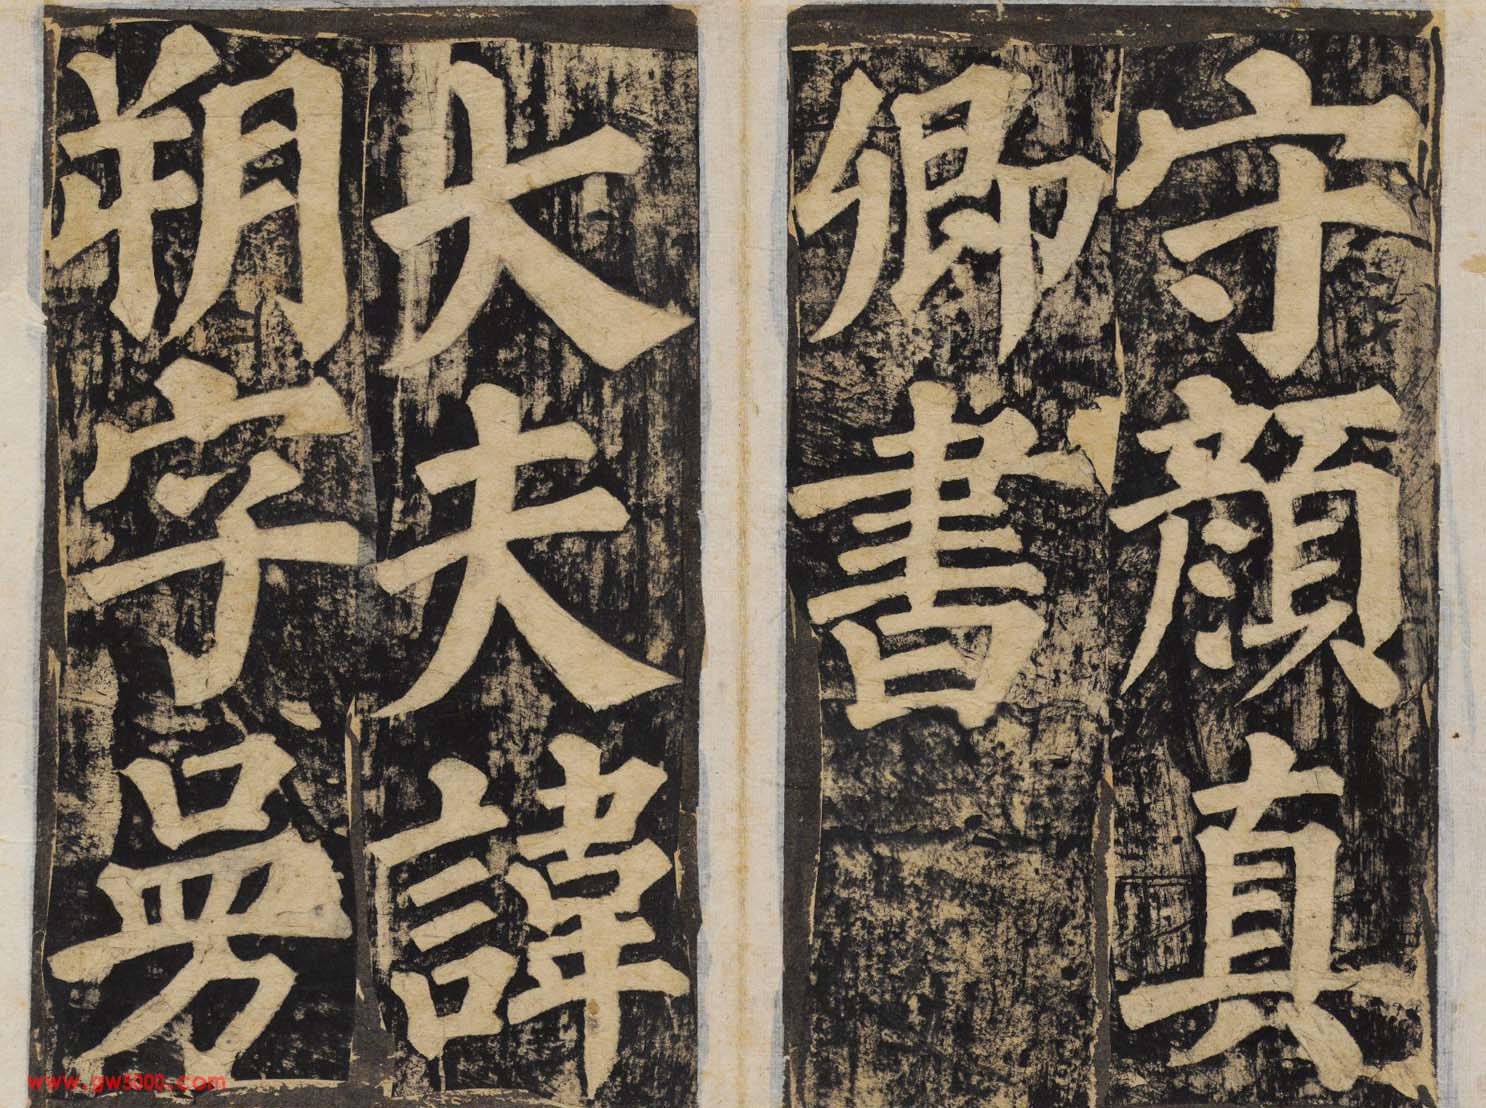 守顏真
卿書
大夫諱
朔字曼
www.gw5000.com